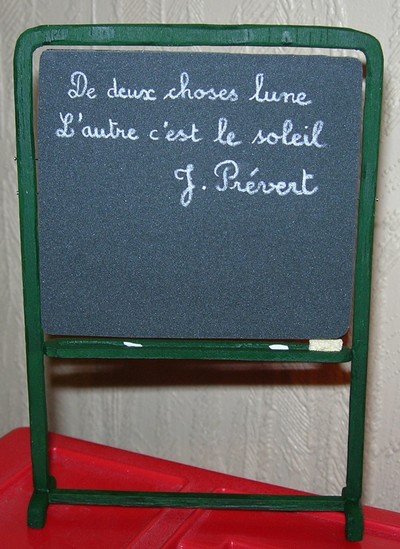 De deux choses lune
L'autre c'est le soleil
J. Prévert